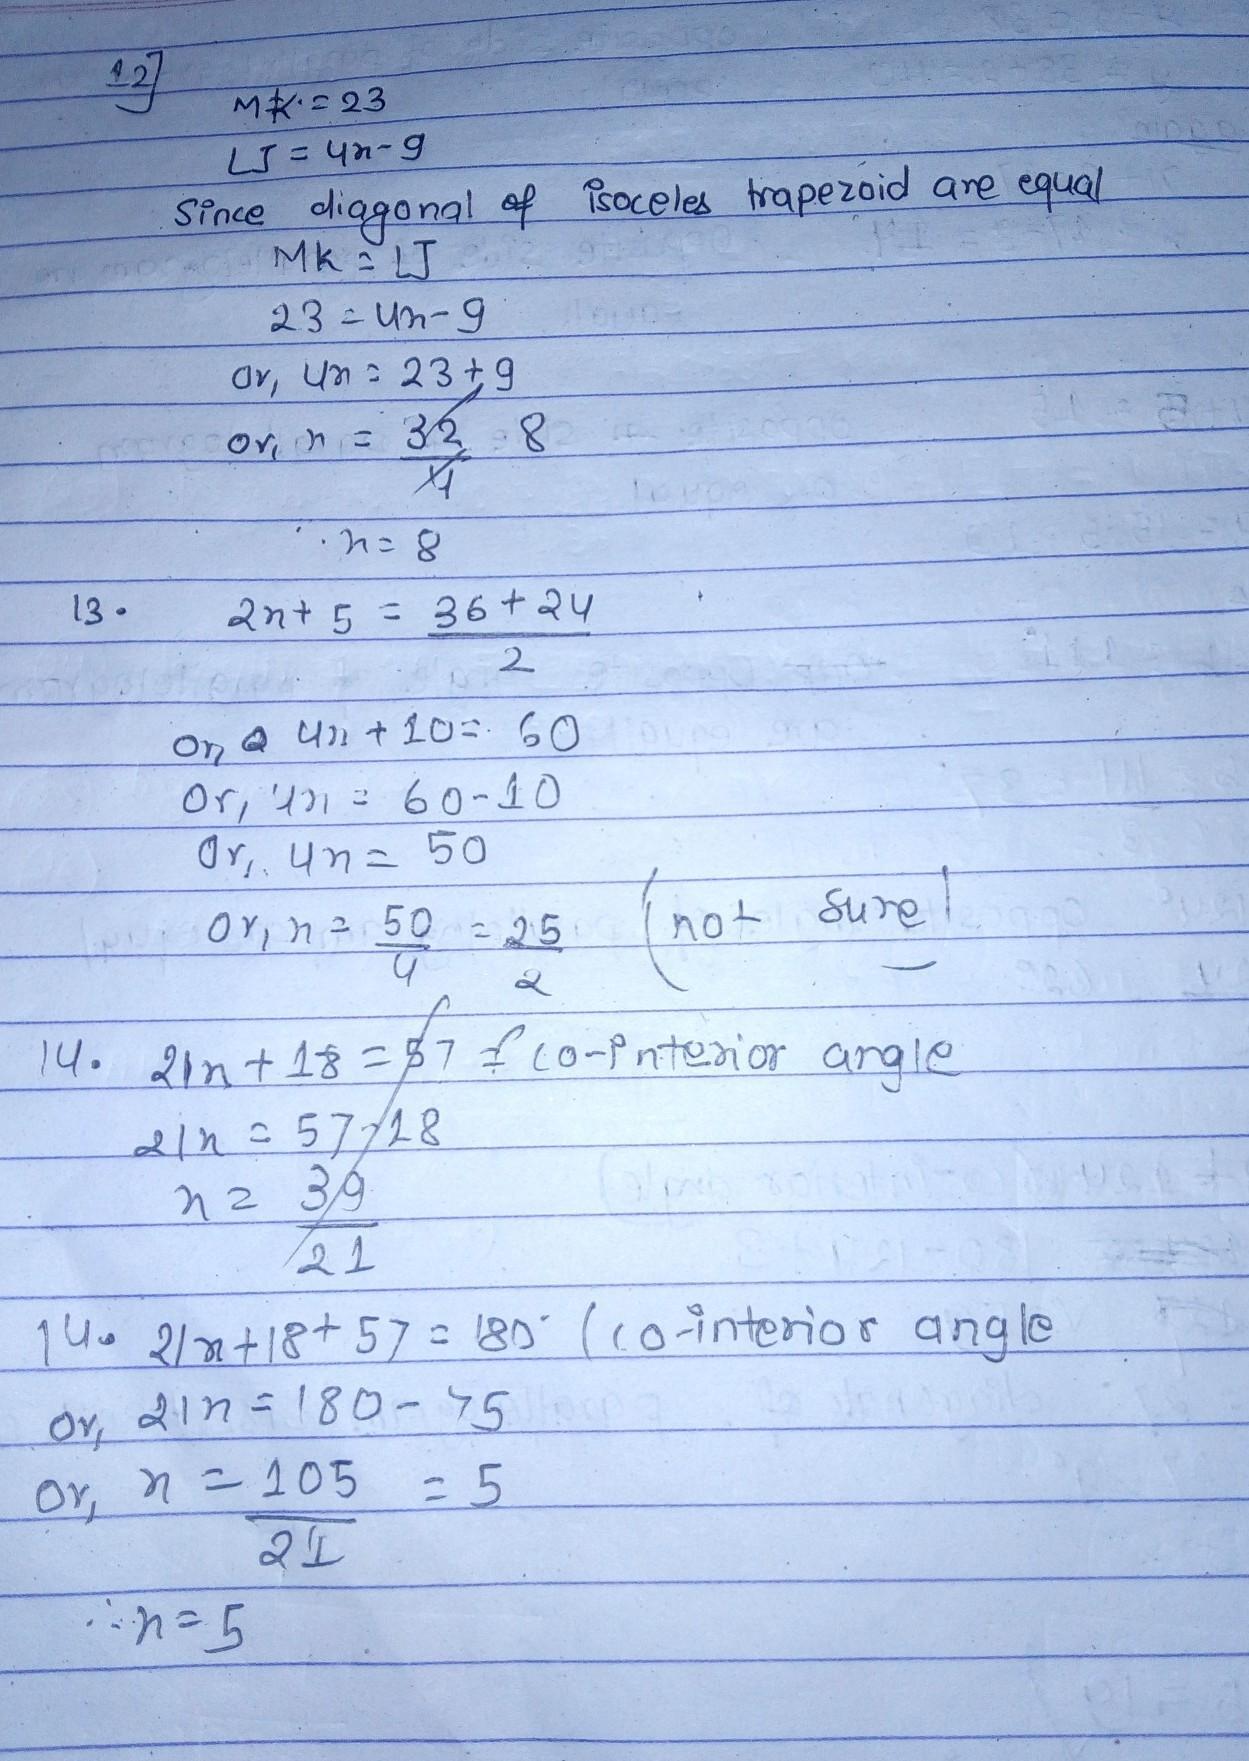 12]
MK = 23
LJ = 4n-9
Since diagonal of isoceles trapezoid are equal
MK = LJ
23 = 4n-9
or, 4n = 23+9
or, n = 32/4 8
∴ n = 8
13. 2n+5 = 36+24/2
or, 4n+10 = 60
Or, 4n = 60-10
Or, 4n = 50
or, n = 50/4 = 25/2 (not sure)
14. 21n+18 = 57 { co-interior angle
21n = 57-18
n = 39/21
14. 21n+18+57 = 180° (co-interior angle
or, 21n = 180-75
or, n = 105/21 = 5
∴ n = 5